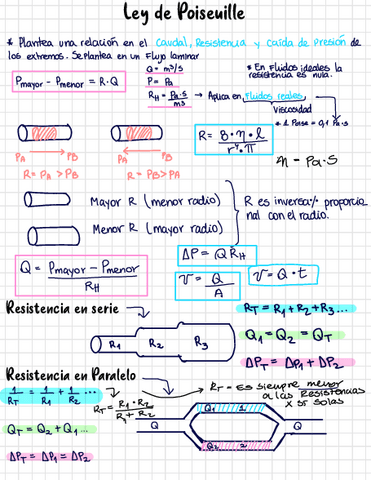 Ley de Poiseuille
* Plantea una relación en el Caudal, Resistencia y caída de Presión de
los extremos. Se plantea en un Flujo laminar
Pmayor - Pmenor = R·Q
Q = m³/s
P = Pa
RH = Pa·s/m3
* En Fluidos ideales la
resistencia es nula.
→ Aplica en Fluidos reales
Viscosidad
* 1 Poise = 0,1 Pa·s
R = 8·η·l / r⁴·π
η = Pa·S
PA → PB
R = PA > PB
PA ← PB
R = PB > PA
Mayor R (menor radio)
Menor R (mayor radio)
R es inversa% proporcio
nal con el radio.
ΔP = Q RH
Q = Pmayor - Pmenor / RH
v = Q / A
V = Q · t
Resistencia en serie
R1 R2 R3
RT = R1 + R2 + R3...
Q1 = Q2 = QT
ΔPT = ΔP1 + ΔP2
Resistencia en Paralelo
1/RT = 1/R1 + 1/R2 ...
RT = R1 · R2 / R1 + R2
RT = Es siempre menor
a las Resistencias
x si solas
QT = Q2 + Q1 ...
ΔPT = ΔP1 = ΔP2
Q Q1 1 Q2 2 Q